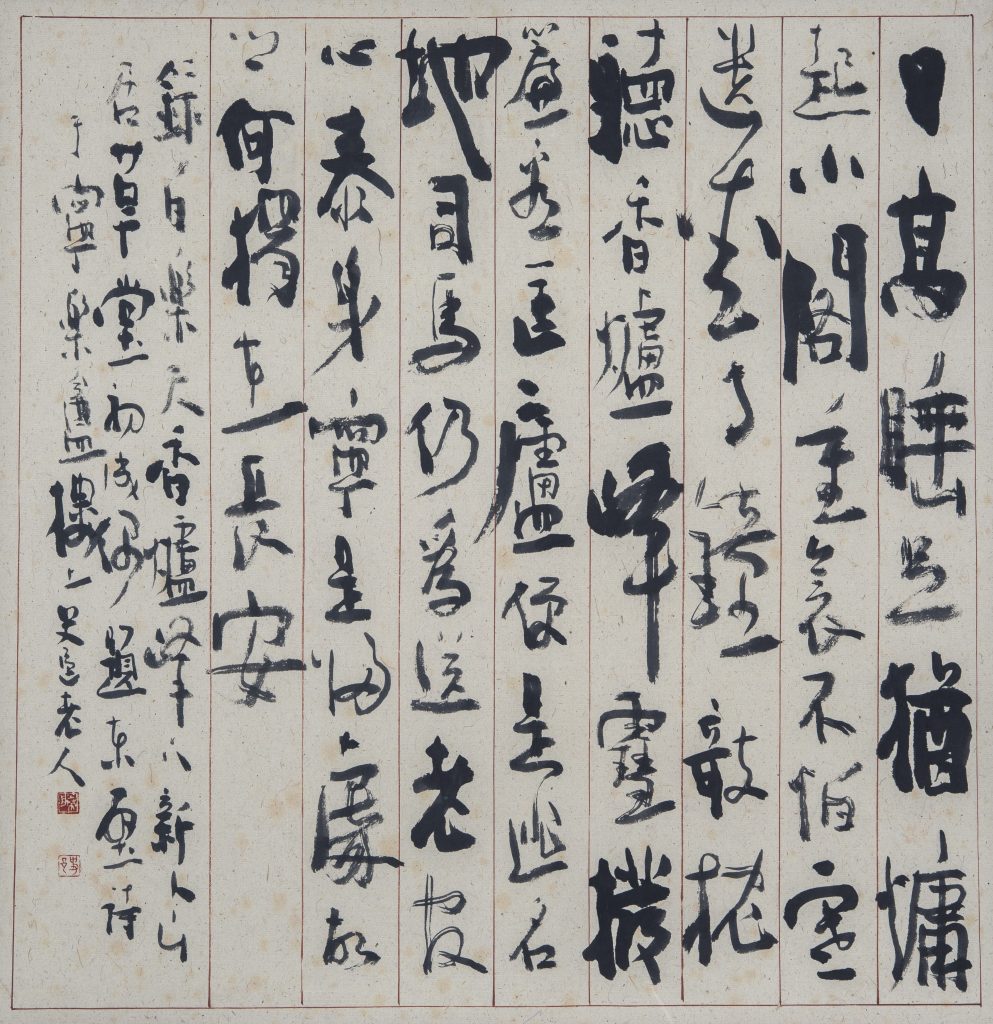 日高睡足猶慵
起小閣重衾不怕寒
遺愛寺鐘敧枕
聽香爐峰雪撥
簾看匡廬便是逃名
地司馬仍為送老官
心泰身寧是歸處故
鄉何獨在長安
錄白樂天香爐峰下新卜山
居草堂初成偶題東壁詩
于寧樂盦樓上老人